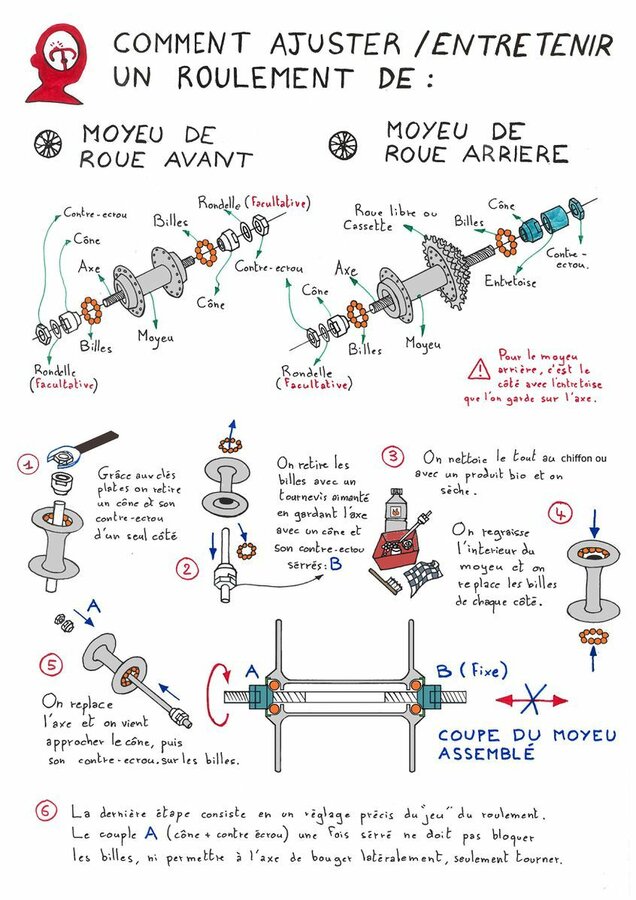 COMMENT AJUSTER / ENTRETENIR
UN ROULEMENT DE :
MOYEU DE
ROUE AVANT
MOYEU DE
ROUE ARRIERE
Contre-ecrou
Cône
Axe
Billes
Rondelle (Facultative)
Contre-ecrou
Cône
Moyeu
Billes
Rondelle
(Facultative)
Roue libre ou
Cassette
Billes
Cône
Contre-
ecrou.
Entretoise
Axe
Cône
Moyeu
Billes
Rondelle
(Facultative)
Pour le moyeu
arrière, c'est le
côté avec l'entretoise
que l'on garde sur l'axe.
1
Grâce aux clés
plates on retire
un cône et son
contre-ecrou
d'un seul côté
2
On retire les
billes avec un
tournevis aimanté
en gardant l'axe
avec un cône et
son contre-ecrou
serrés: B
3
On nettoie le tout au chiffon ou
avec un produit bio et on
sèche.
4
On regraisse
l'interieur du
moyeu et on
replace les billes
de chaque côté.
A
5
On replace
l'axe et on vient
approcher le cône, puis
son contre-ecrou sur les billes.
A
B (Fixe)
COUPE DU MOYEU
ASSEMBLÉ
6
La dernière étape consiste en un réglage précis du "jeu" du roulement.
Le couple A (cône + contre écrou) une fois serré ne doit pas bloquer
les billes, ni permettre à l'axe de bouger latéralement, seulement tourner.